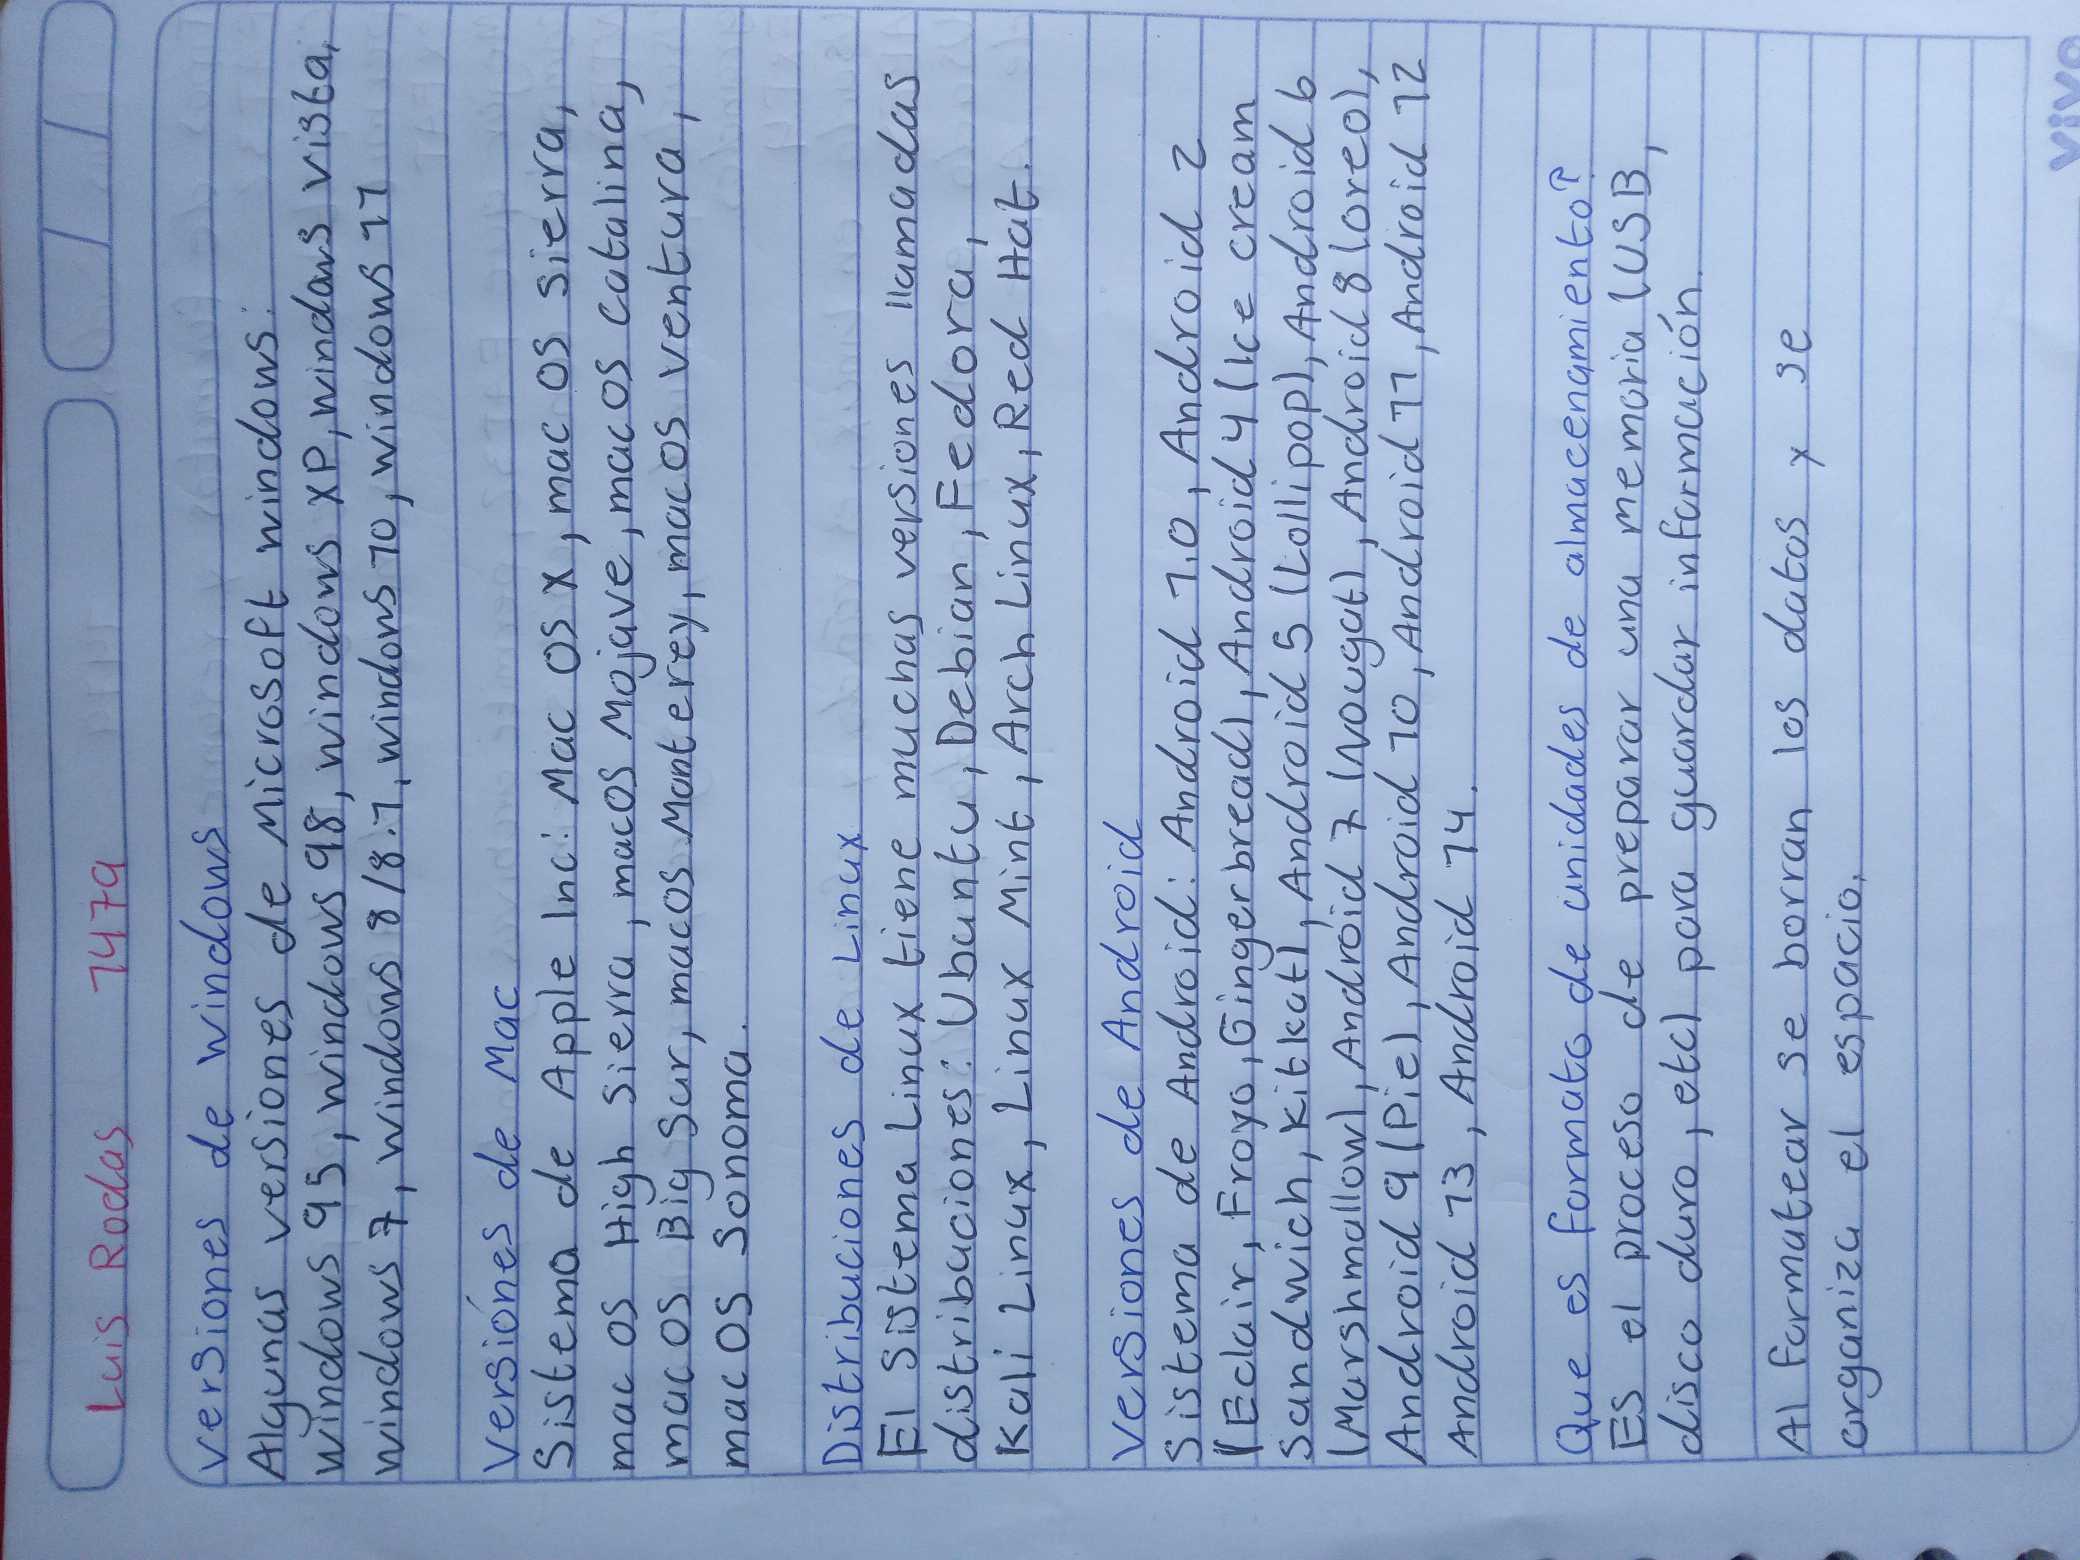 Luis Rodas 1479
versiones de windows
Algunas versiones de Microsoft windows:
windows 95, windows 98, windows XP, windows vista,
windows 7, windows 8/8.1, windows 10, windows 11
Versiónes de Mac
Sistema de Apple Inc: Mac OS X, mac OS sierra,
mac OS High Sierra, macOS Mojave, macOS catalina,
mac OS Big Sur, macOS Monterey, macOS ventura,
mac OS Sonoma.
Distribuciones de Linux
El Sistema Linux tiene muchas versiones llamadas
distribuciones: Ubuntu, Debian, Fedora,
Kali Linux, Linux Mint, Arch Linux, Red Hat.
Versiones de Android
Sistema de Android: Android 1.0, Android 2
(Eclair, Froyo, Gingerbread), Android 4 (Ice cream
Sandwich, KitKat), Android 5 (Lollipop), Android 6
(Marshmallow), Android 7 (Nougat), Android 8 (oreo),
Android 9 (Pie), Android 10, Android 11, Android 12
Android 13, Android 14.
Que es formato de unidades de almacenamiento?
ES el proceso de preparar una memoria (USB,
disco duro, etc) para guardar información.
Al formatear se borran los datos y se
organiza el espacio.
vivo